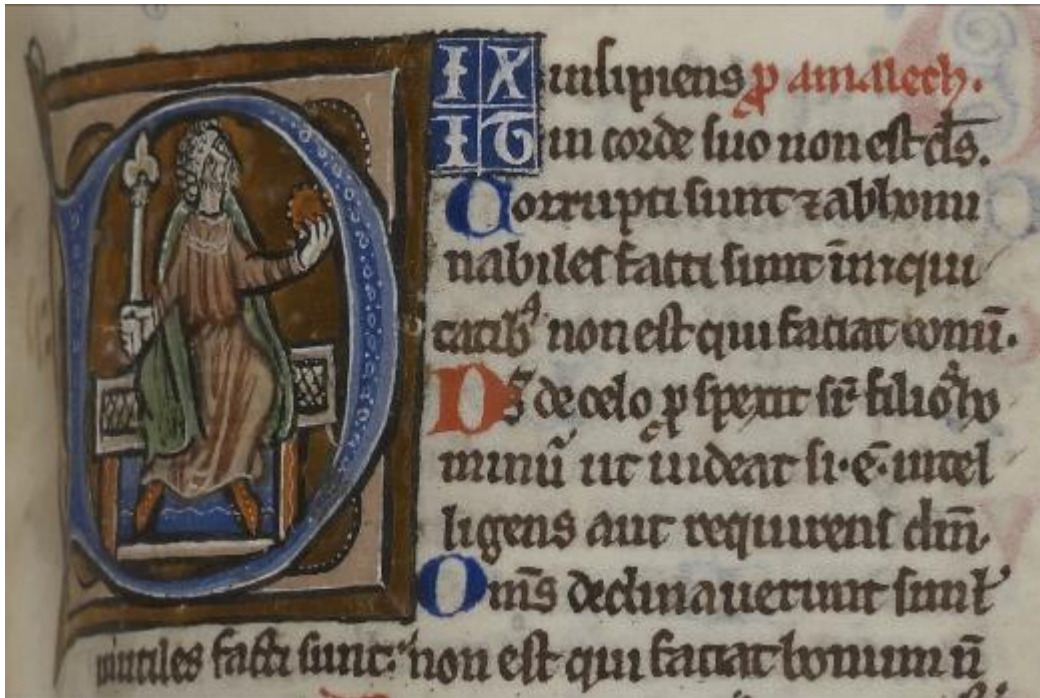 DIX insipiens ꝓ amalech.
IT in corde suo non est dſ̄.
Corrupti sunt ⁊ abhomi
nabiles facti sunt in̄ iniqui
tatibꝰ non est qui faciat bonū.
Dſ̄ de celo ꝓspexit sr̄ filios ho
minū ut uideat si · ē · intel
ligens aut requirens dm̄.
Omſ̄ declinauerunt simł
inutiles facti sunt: non est qui faciat bonum n̄